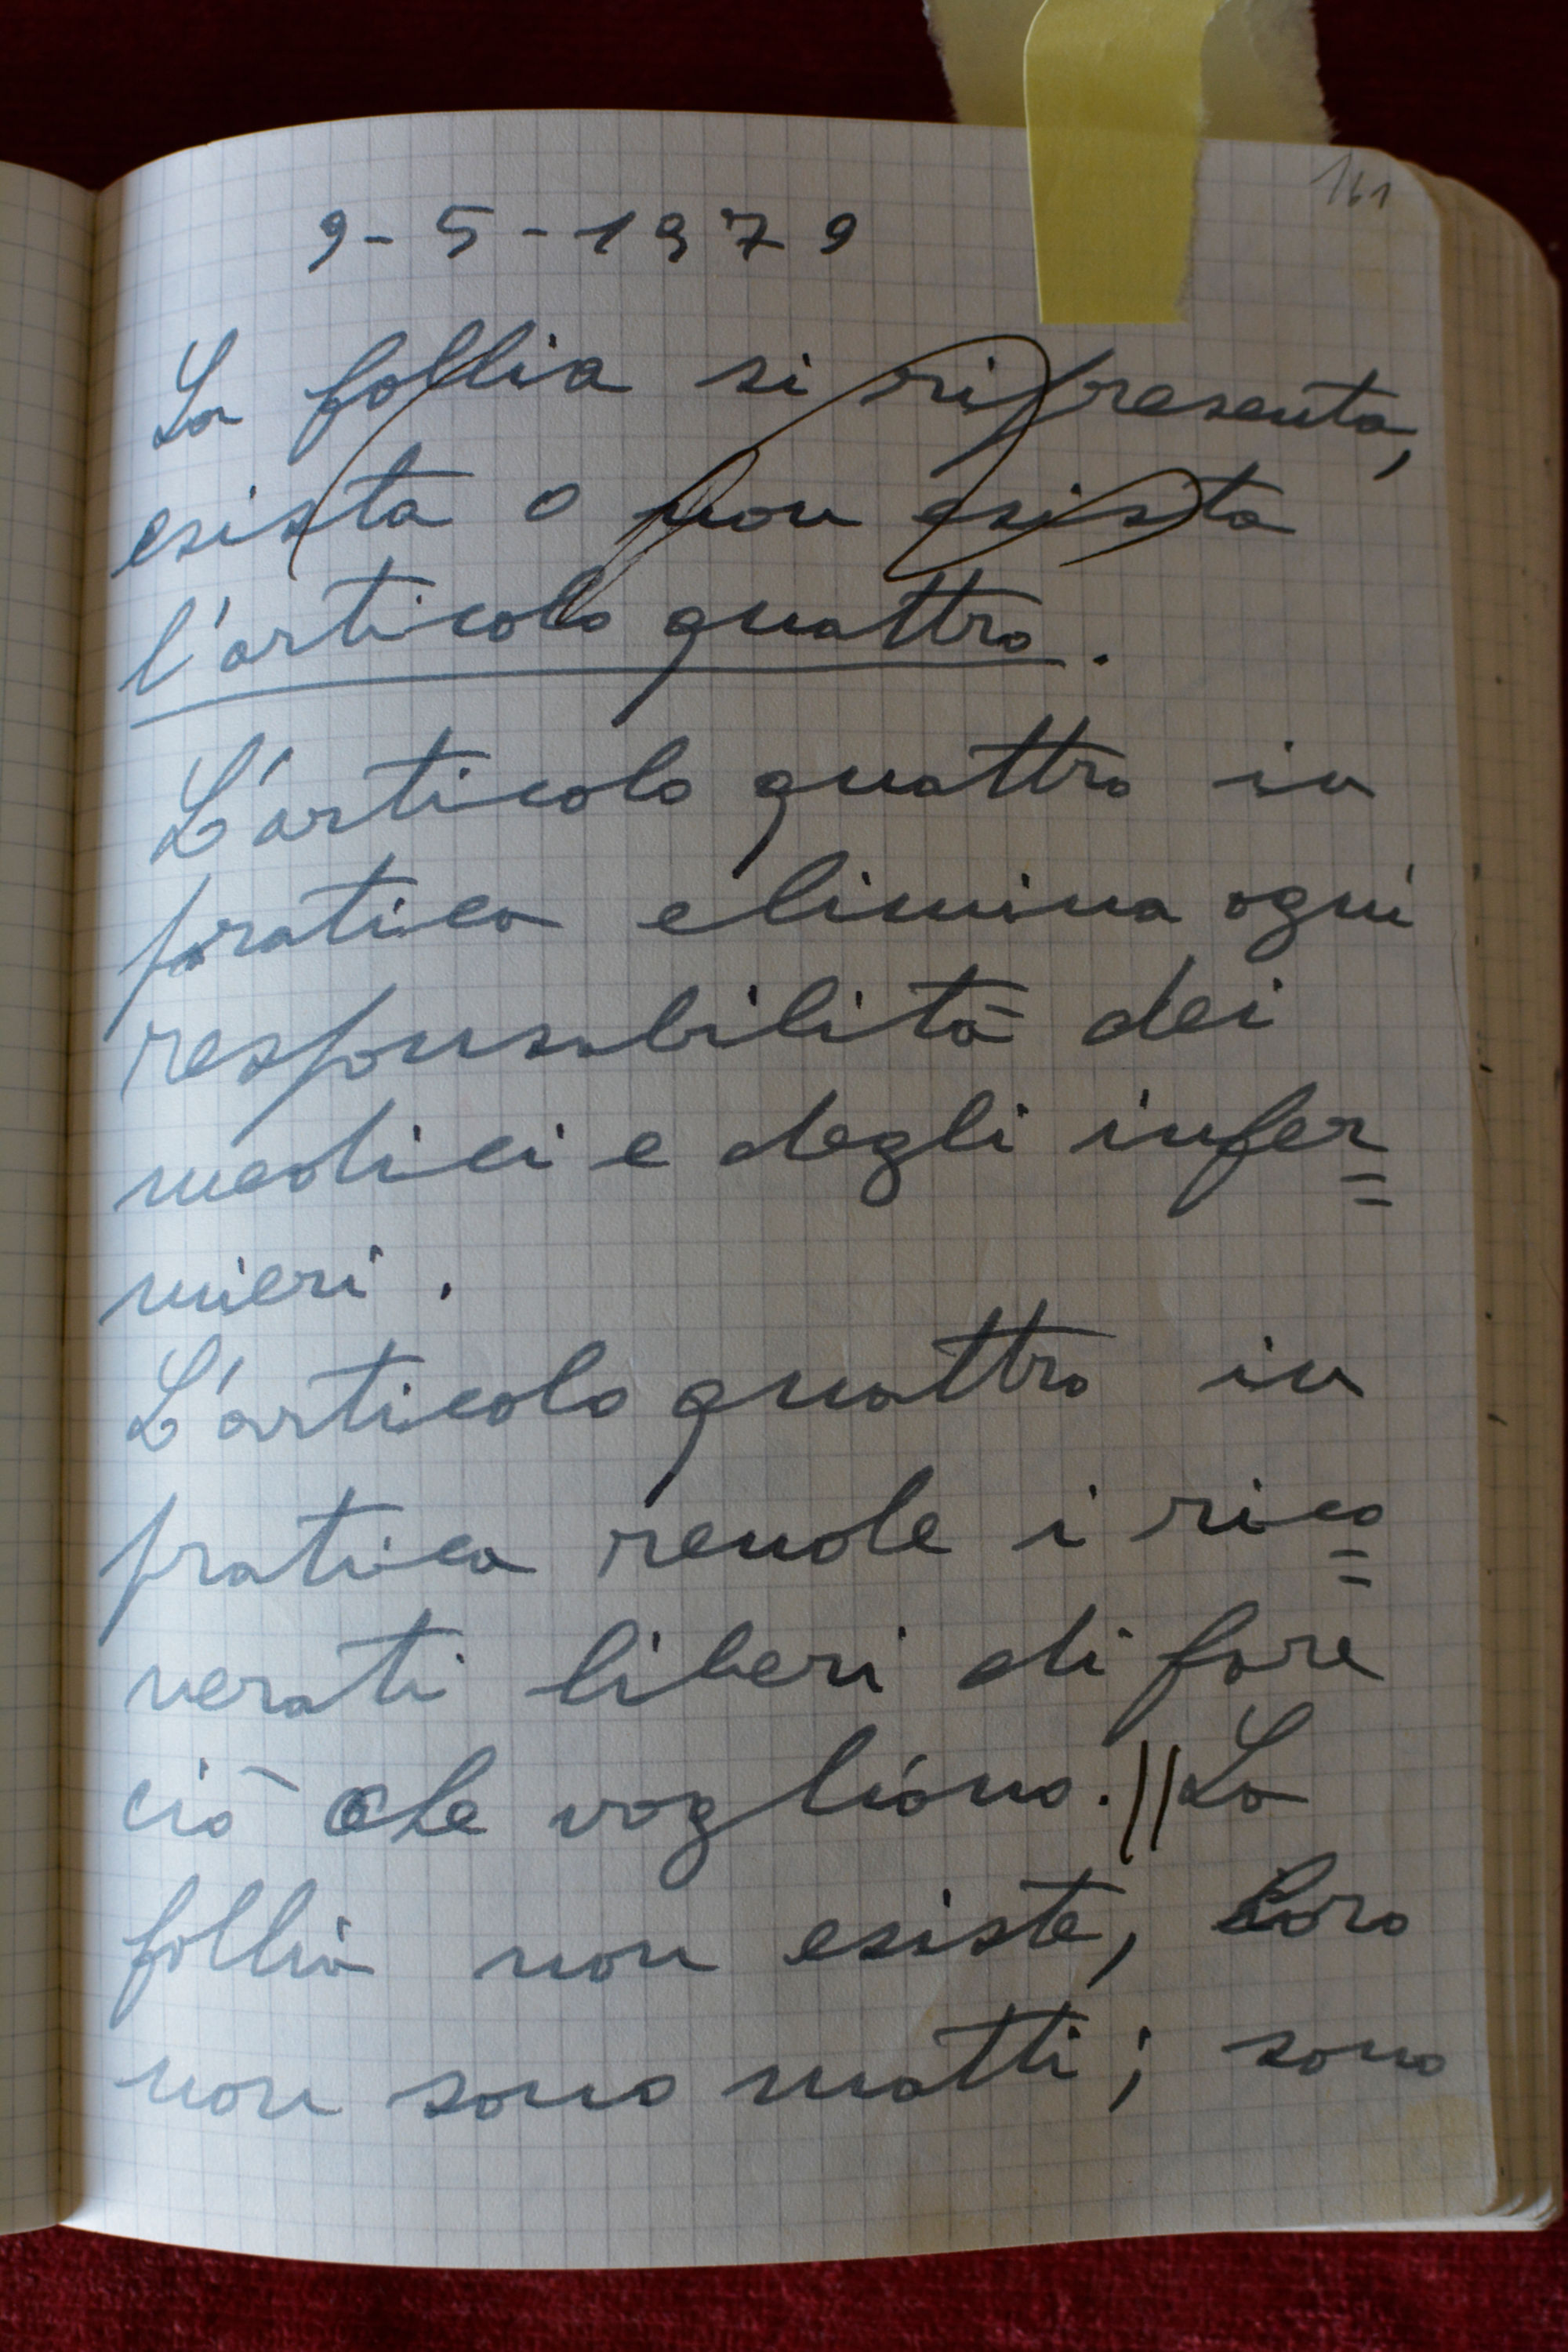 161
9-5-1979
La follia si ripresenta,
esista o non esista
l'articolo quattro.
L'articolo quattro in
pratica elimina ogni
responsabilità dei
medici e degli infer=
mieri.
L'articolo quattro in
pratica rende i rico=
verati liberi di fare
ciò che vogliono. || La
follia non esiste, loro
non sono matti; sono